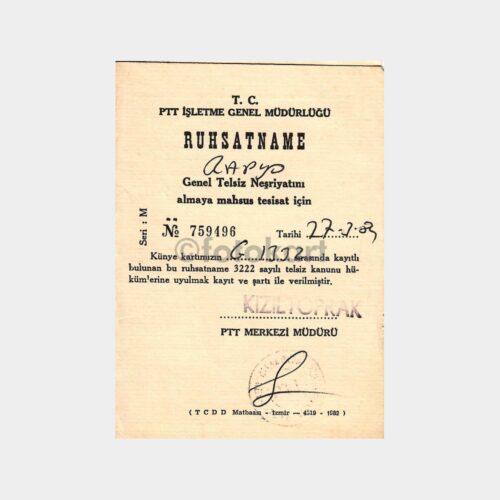 T. C.
PTT İŞLETME GENEL MÜDÜRLÜĞÜ
RUHSATNAME
RADYO
Genel Telsiz Neşriyatını
almaya mahsus tesisat için
Seri : M
№ 759496 Tarihi
©fotokart
Künye kartımızın G. 1332 sırasında kayıtlı
bulunan bu ruhsatname 3222 sayılı telsiz kanunu hü-
küm'erine uyulmak kayıt ve şartı ile verilmiştir.
KIZILTOPRAK
PTT MERKEZİ MÜDÜRÜ
( TCDD Matbaası - İzmir — 4519 - 1982 )